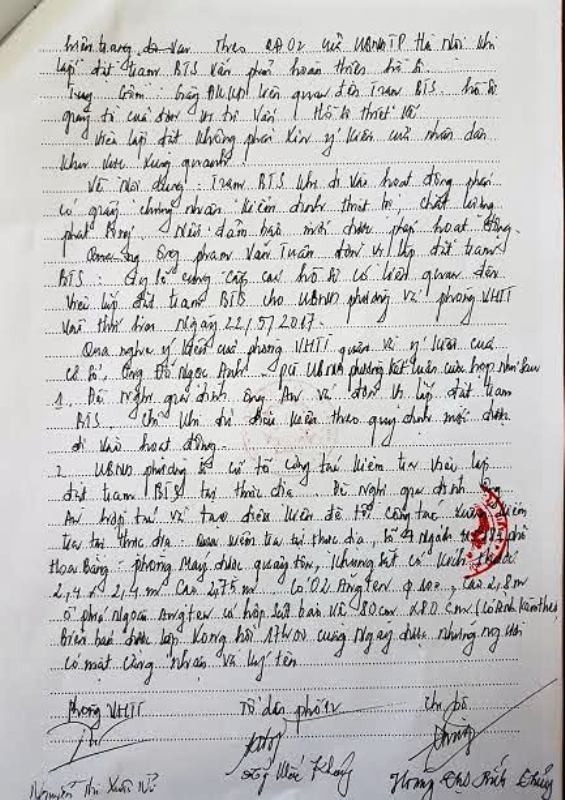 hiện trạng do vậy theo QĐ02 của UBND TP Hà Nội khi
lắp đặt trạm BTS vẫn phải hoàn thiện hồ sơ.
Gồm: Giấy ĐKKD liên quan đến Trạm BTS. hồ sơ
giấy tờ của đơn vị tư vấn, Hồ sơ thiết kế
Việc lắp đặt không phải xin ý kiến của nhân dân
khu vực xung quanh.
Về nội dung: Trạm BTS khi đi vào hoạt động phải
có giấy chứng nhận kiểm định thiết bị, chất lượng
phát sóng. Nếu đảm bảo mới được phép hoạt động.
ông phạm Văn Tuân đơn vị lắp đặt trạm
BTS: cung cấp các hồ sơ có liên quan đến
việc lắp đặt trạm BTS cho UBND phường và phòng VHTT
Thời hạn Ngày 22/5/2017.
Qua nghe ý kiến của phòng VHTT quận và ý kiến của
cơ sở, ông Đỗ Ngọc Anh. UBND phường kết luận cuộc họp như sau
1. Đề nghị gia đình ông An và đơn vị lắp đặt trạm
BTS. Chỉ khi đủ điều kiện theo quy định mới được
đi vào hoạt động.
2 UBND phường sẽ cử tổ công tác kiểm tra việc lắp
đặt trạm BTS tại thực địa. Đề nghị gia đình ông
An hợp tác và tạo điều kiện để tổ công tác xuống kiểm
tra tại thực địa. Qua kiểm tra tại thực địa, số 7 ngách phố
Hoa Bằng: phòng máy được quây tôn, khung sắt có kích thước
2,4 x 2,4 m cao 2,75 m. Có 02 Ăngten φ cao 2,8 m
ở phía ngoài Ăngten có hộp sắt bảo vệ 80 cm x 80 cm (có ảnh kèm theo)
Biên bản được lập xong hồi 17h00 cùng ngày được những người
có mặt công nhận và ký tên
Phòng VHTT Tổ dân phố Chi bộ
Nguyễn Thị Xuân